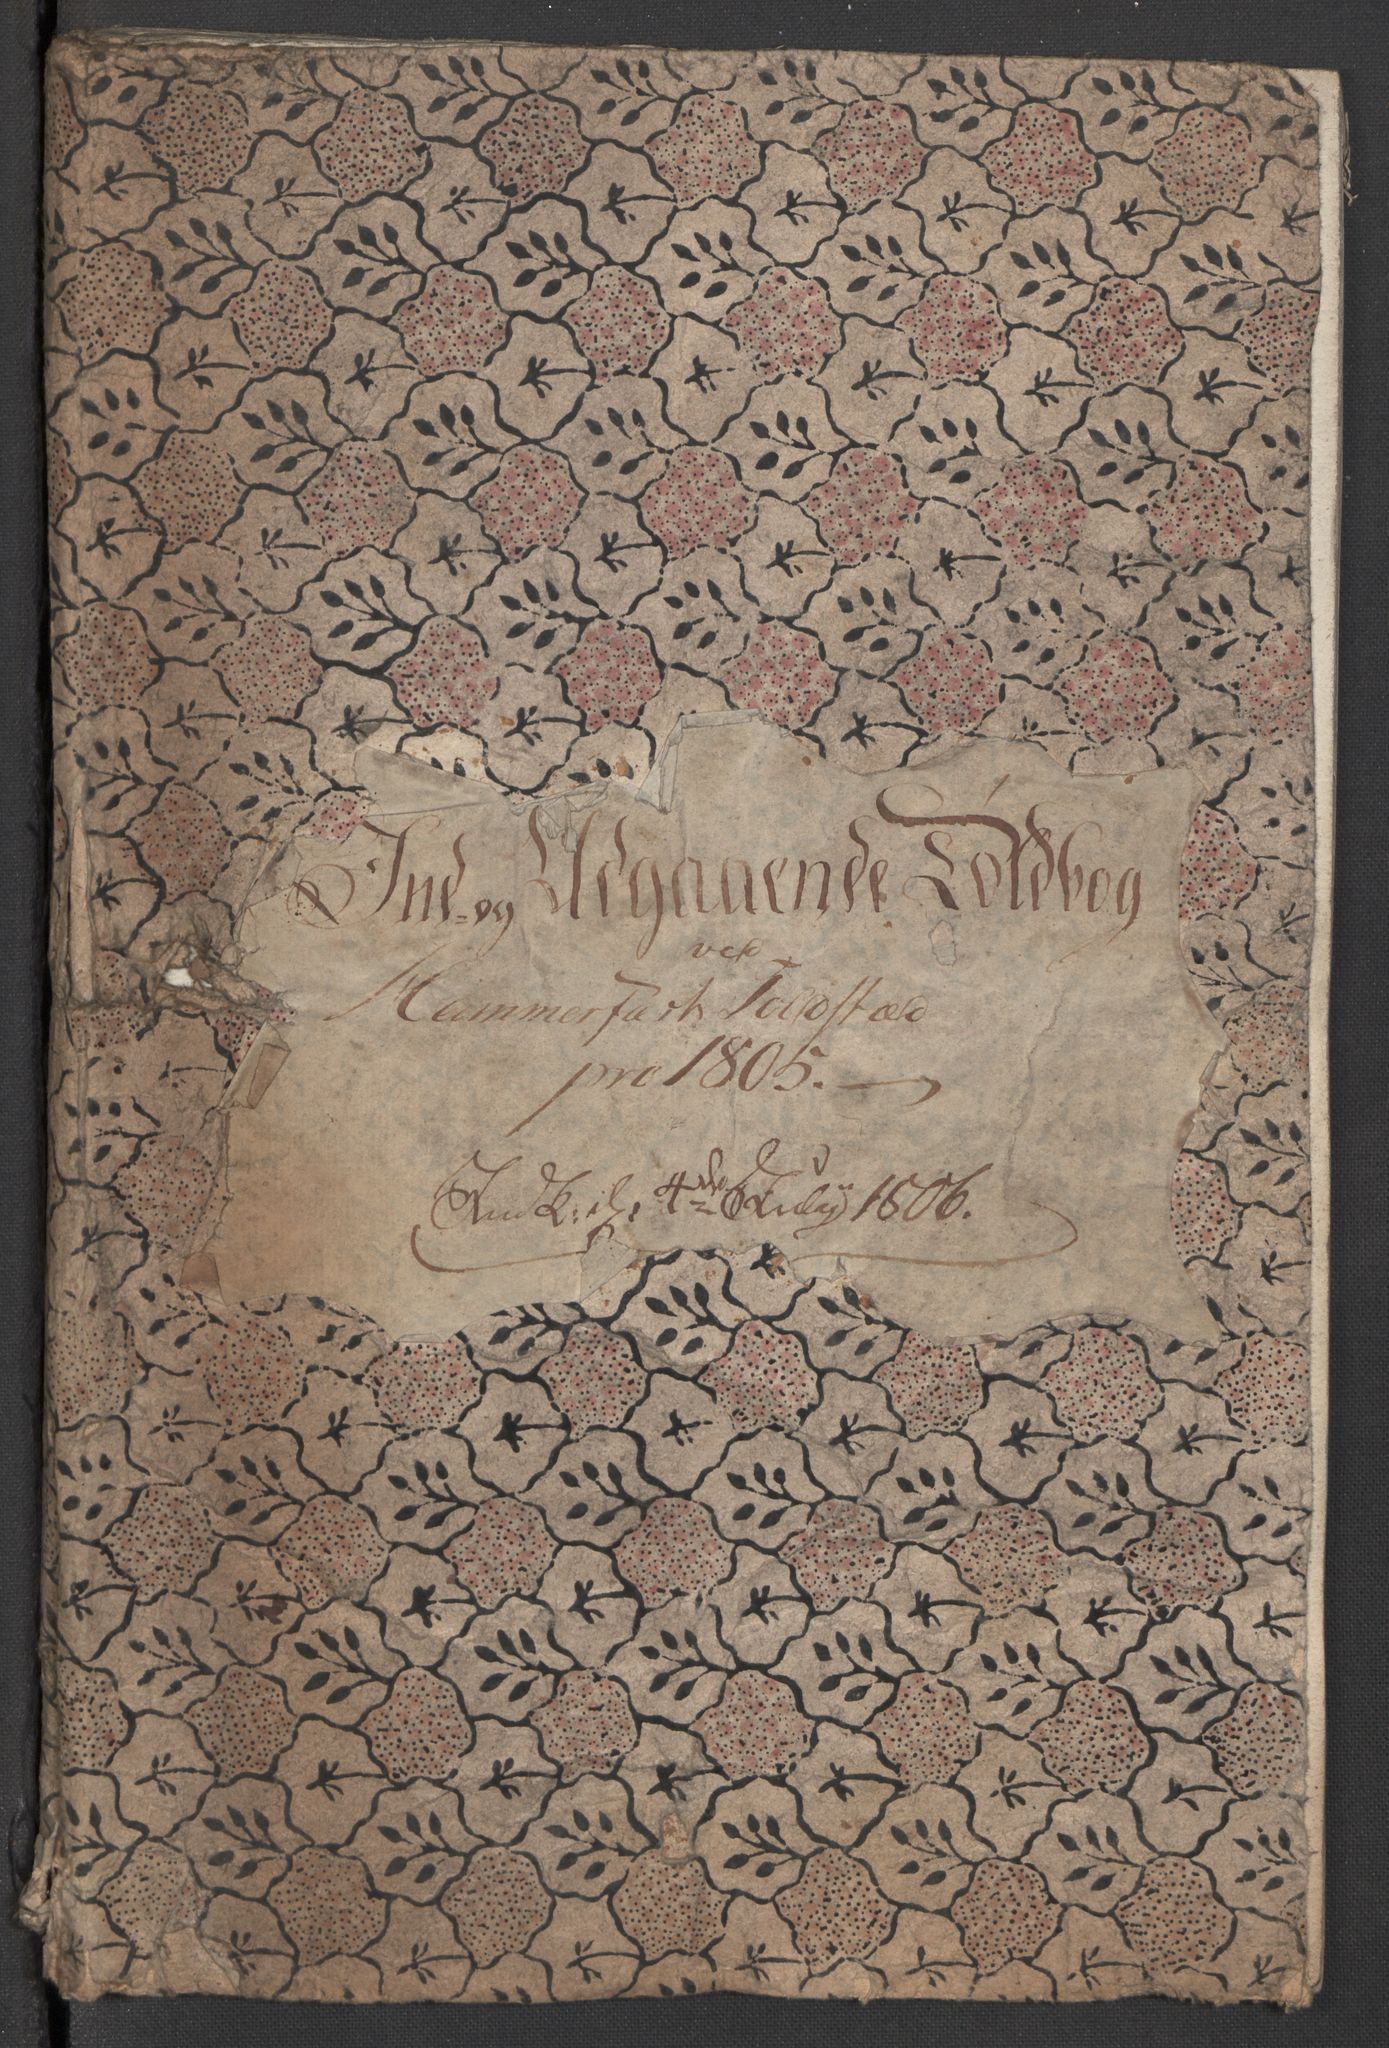 Ind- og Udgaaende Toldbog
ved
Hammerfæst Toldstæd
pro 1805.
4de July 1806.